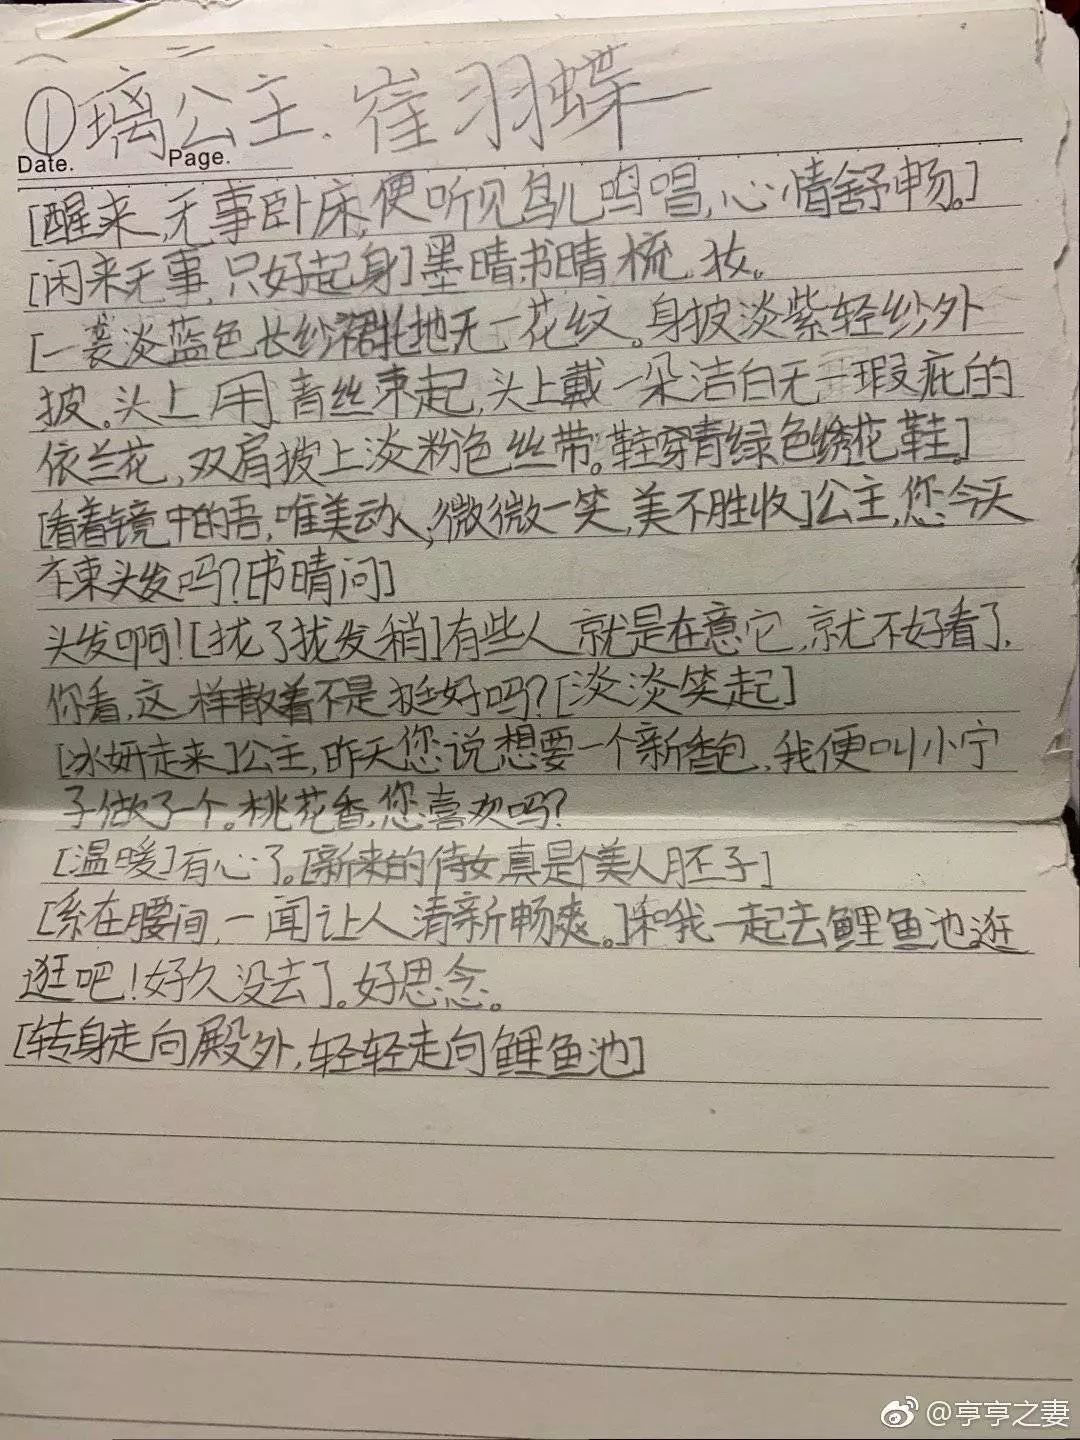 ①璃公主.崔羽蝶
Date. Page.
[醒来,无事卧床,便听见鸟儿鸣唱,心情舒畅。]
[闲来无事,只好起身]墨晴书晴梳妆。
[一袭淡蓝色长纱裙拖地无一花纹。身披淡紫轻纱外
披。头上用青丝束起,头上戴一朵洁白无一瑕疵的
依兰花,双肩披上淡粉色丝带。鞋穿青绿色绣花鞋。]
[看着镜中的吾,唯美动人,微微一笑,美不胜收]公主,您今天
不束头发吗?[书晴问]
头发啊![拢了拢发稍]有些人就是在意它,就不好看了,
你看,这样散着不是挺好吗?[淡淡笑起]
[冰妍走来]公主,昨天您说想要一个新香包,我便叫小宁
子做了一个。桃花香,您喜欢吗?
[温暖]有心了。[新来的侍女真是个美人胚子]
[系在腰间,一闻让人清新畅爽。]和我一起去鲤鱼池逛
逛吧!好久没去了。好思念。
[转身走向殿外,轻轻走向鲤鱼池]
@亨亨之妻